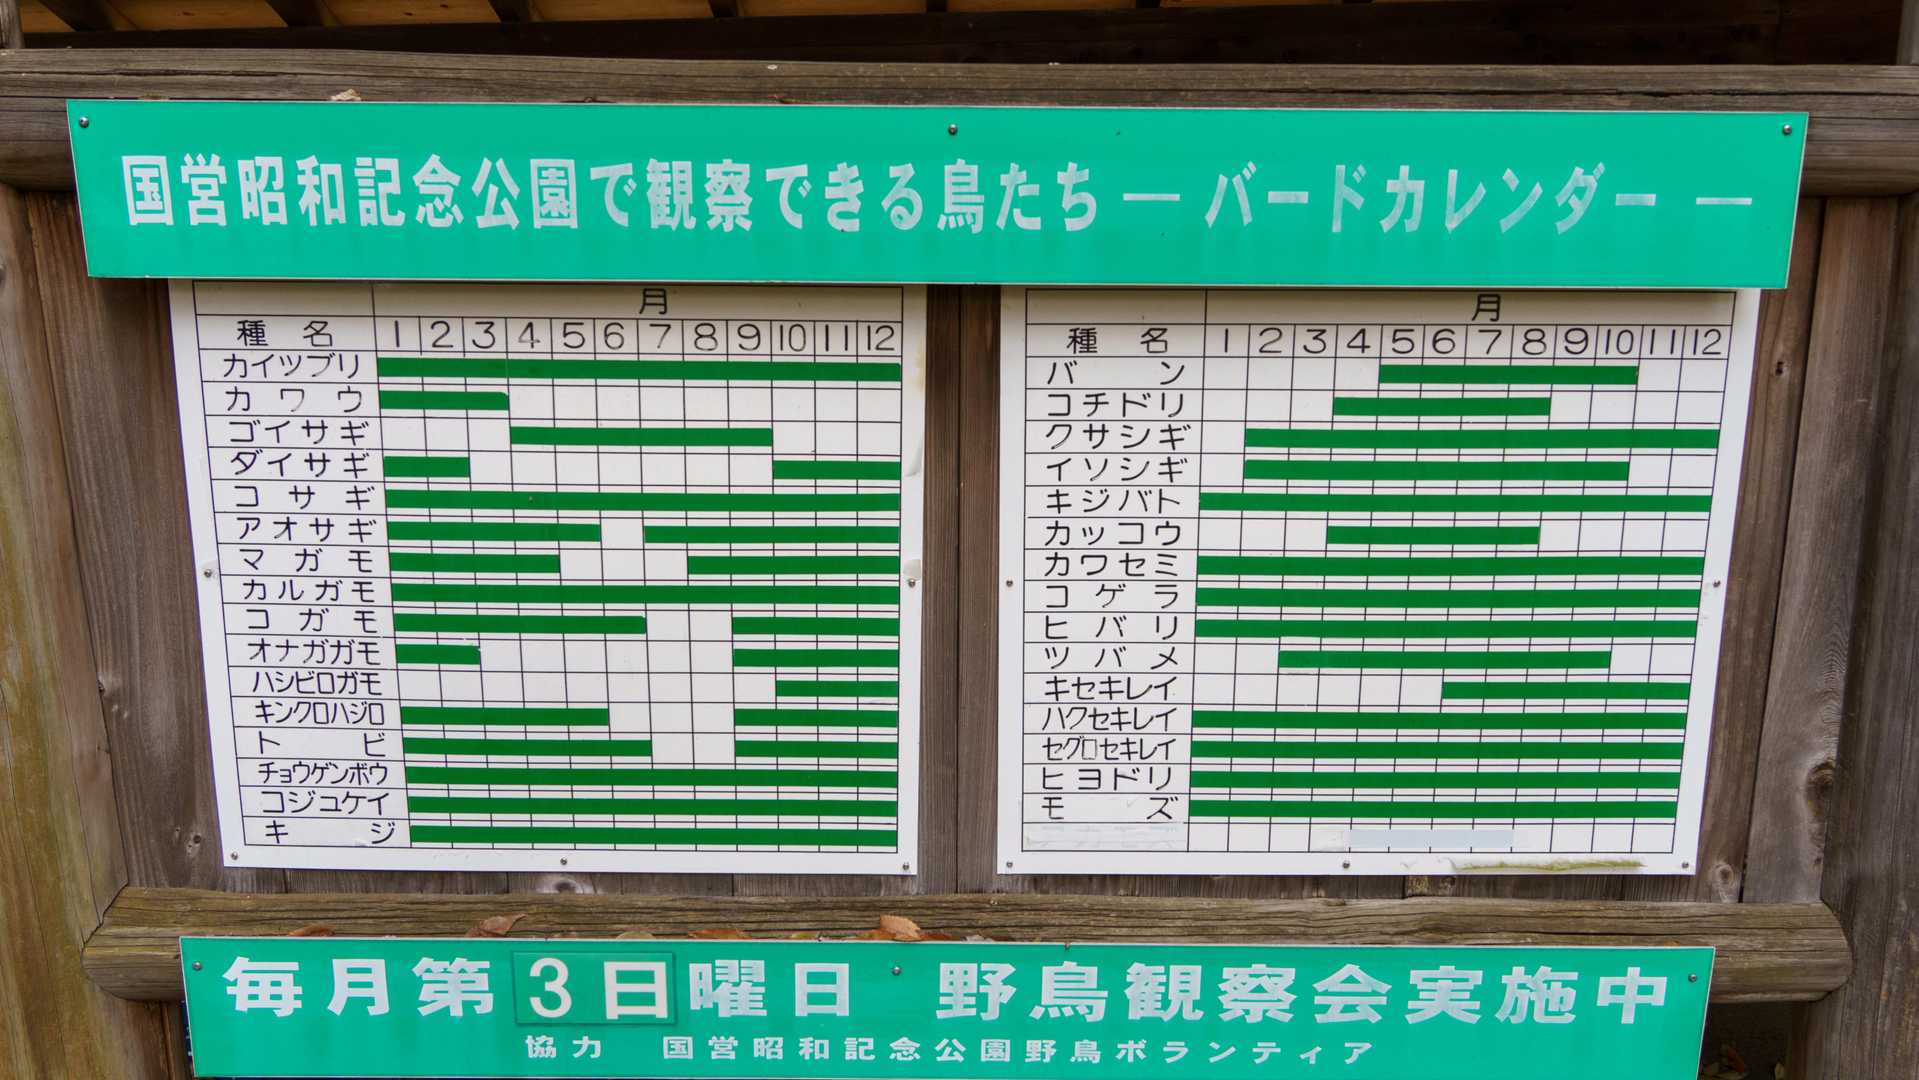 国営昭和記念公園で観察できる鳥たち ― バードカレンダー ―
月
種名 1 2 3 4 5 6 7 8 9 10 11 12
カイツブリ
カワウ
ゴイサギ
ダイサギ
コサギ
アオサギ
マガモ
カルガモ
コガモ
オナガガモ
ハシビロガモ
キンクロハジロ
トビ
チョウゲンボウ
コジュケイ
キジ
月
種名 1 2 3 4 5 6 7 8 9 10 11 12
バン
コチドリ
クサシギ
イソシギ
キジバト
カッコウ
カワセミ
コゲラ
ヒバリ
ツバメ
キセキレイ
ハクセキレイ
セグロセキレイ
ヒヨドリ
モズ
毎月第3日曜日 野鳥観察会実施中
協力 国営昭和記念公園野鳥ボランティア